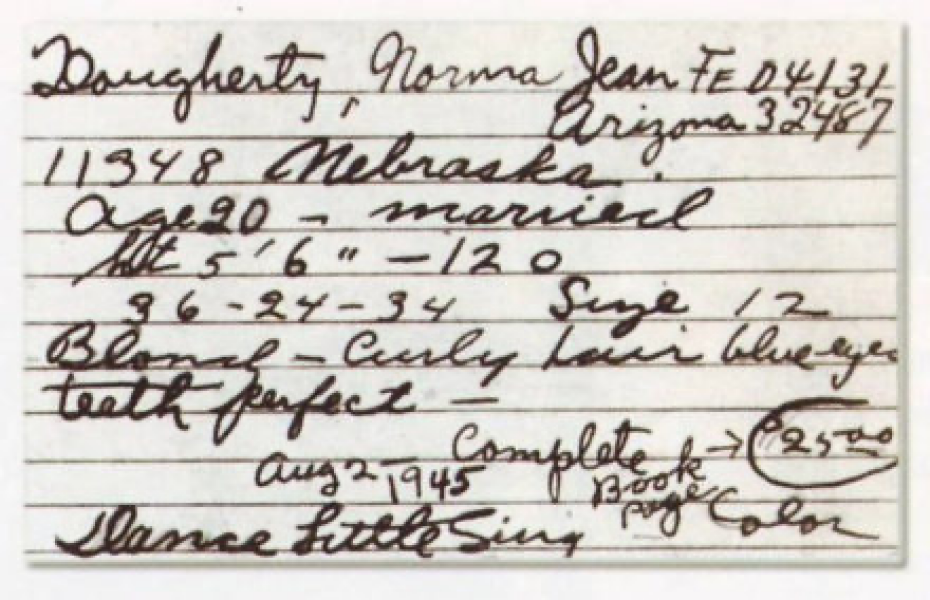 Dougherty, Norma Jean FE 04131
Arizona 32487
11348 Nebraska.
age 20 - married
ht 5'6" - 120
36-24-34 Size 12
Blond - Curly hair blue eyes
teeth perfect -
Complete → $25.00
Aug 2 - 1945 Book
page Color
Dance Little Sing